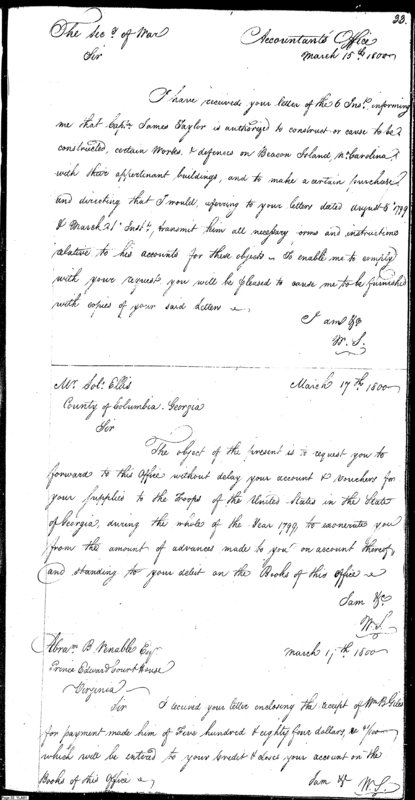 33.
The Secy of War
Accountants Office
Sir
March 15th 1800
I have received your letter of the 6 Inst. informing
me that Capt. James Taylor is authorized to construct or cause to be
constructed, certain Works, & defences on Beacon Island, No Carolina,
with their appertinent buildings, and to make a certain purchase
and directing that I would, referring to your letters dated August 8 1799
& March 21 Inst., transmit him all necessary forms and instructions
relative to his accounts for these objects. To enable me to comply
with your request, you will be pleased to cause me to be furnished
with copies of your said letters
I am &c
W. S.
Mr. Sol. Ellis
March 17th 1800
County of Columbia. Georgia
Sir
The object of the present is to request you to
forward to this Office without delay your account & vouchers for
your supplies to the Troops of the United States in the State
of Georgia, during the whole of the Year 1799, to exonerate you
from the amount of advances made to you on account thereof,
and standing to your debit on the Books of this Office
I am &c
W. S.
Abram B Venable Esq
March 17th 1800
Prince Edward Court House
Virginia
Sir
I received your letter enclosing the receipt of Wm B Giles
for payment made him of Five hundred & eighty four dollars, /100
which will be entered to your Credit & close your account on the
Books of this Office
I am &c
W. S.